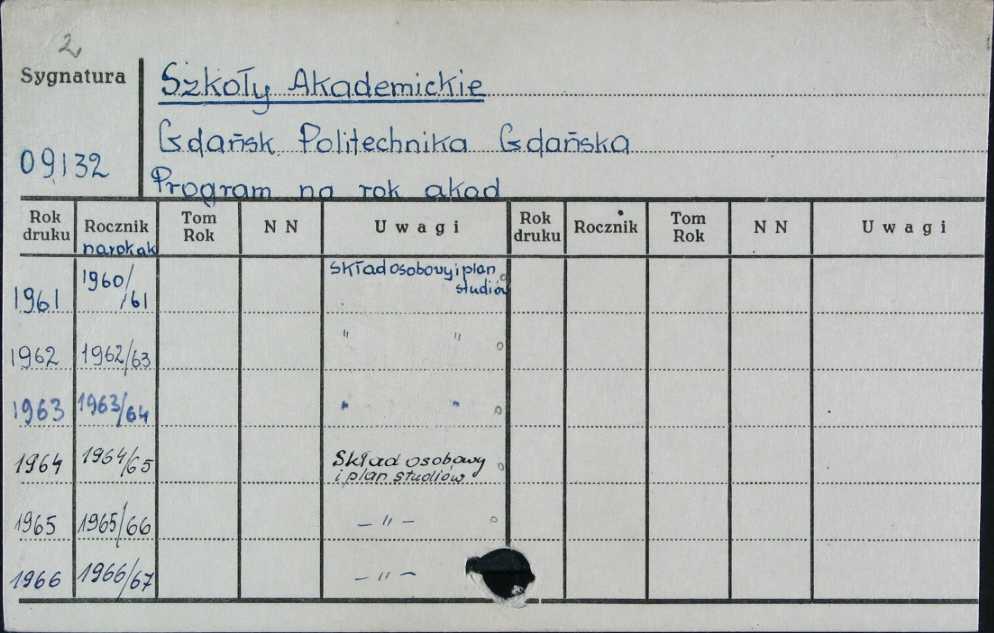 2
Sygnatura
Szkoły Akademickie
Gdańsk Politechnika Gdańska
09132
Program na rok akad
Rok druku Rocznik Tom Rok N N Uwagi Rok druku Rocznik Tom Rok N N Uwagi
na rok ak
1961 1960/61 Skład osobowy i plan studiów
1962 1962/63 " "
1963 1963/64 " "
1964 1964/65 Skład osobowy i plan studiów
1965 1965/66 – " –
1966 1966/67 – " –